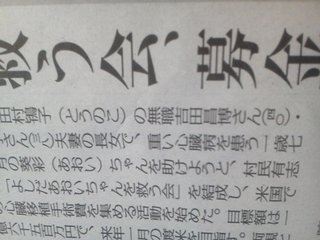 救う会、募金
田村鴇子（とうのこ）の無職吉田昌博さん（四〇）・
子さん（三〇）夫妻の長女で、重い心臓病を患う一歳七
月の葵彩（あおい）ちゃんを助けようと、村民有志
「よしだあおいちゃんを救う会」を結成し、米国で
の心臓移植手術費を集める活動を始めた。目標額は一
億六千五百万円で、来年一月の渡米を目指す。両親に